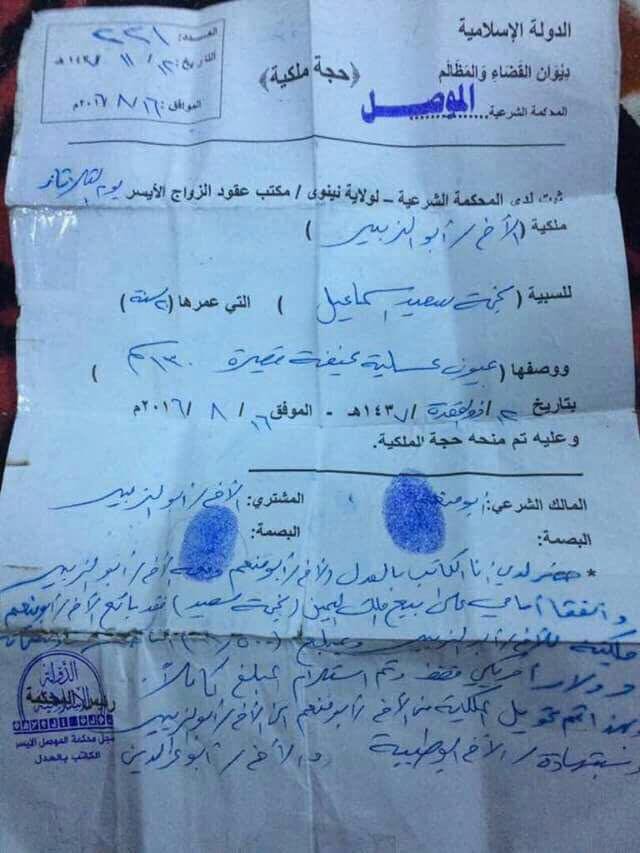 الدولة الإسلامية
ديوان القضاء والمظالم
المحكمة الشرعية الموصل
﴿حجة ملكية﴾
العدد: ٢٢١
التاريخ: ١٢/ ١١ /١٤٣٧هـ
الموافق: ١٦/ ٨ /٢٠١٦م
ثبت لدى المحكمة الشرعية – لولاية نينوى / مكتب عقود الزواج الأيسر يوم الثلاثاء
ملكية (الأخ / أبو الزبير)
للسبية (نجمة سعيد اسماعيل) التي عمرها (٢٠ سنة)
ووصفها (عيون عسلية نحيفة قصيرة ١٣٠ سم)
بتاريخ ١٢/ ذو القعدة /١٤٣٧هـ - الموافق ١٦/ ٨ /٢٠١٦م
وعليه تم منحه حجة الملكية.
المالك الشرعي: أبو منعم المشتري: الأخ / أبو الزبير
البصمة: البصمة:
* حضر لدي أنا الكاتب بالعدل الأخ / أبو منعم ومعه الأخ / أبو الزبير
واتفقا أمامي على بيع ملك اليمين (نجمة سعيد) فقد باع الأخ / أبو منعم
ملكيته للأخ / أبو الزبير وبمبلغ (١٥٠٠)
دولار أمريكي فقط وتم استلام المبلغ كاملاً.
وبهذا تم تحويل الملكية من الأخ / أبو منعم الى الأخ / أبو الزبير
وبشهادة / الأخ و الأخ / أبو عز الدين
الدولة الإسلامية
سجل محكمة الموصل الأيسر
الكاتب بالعدل